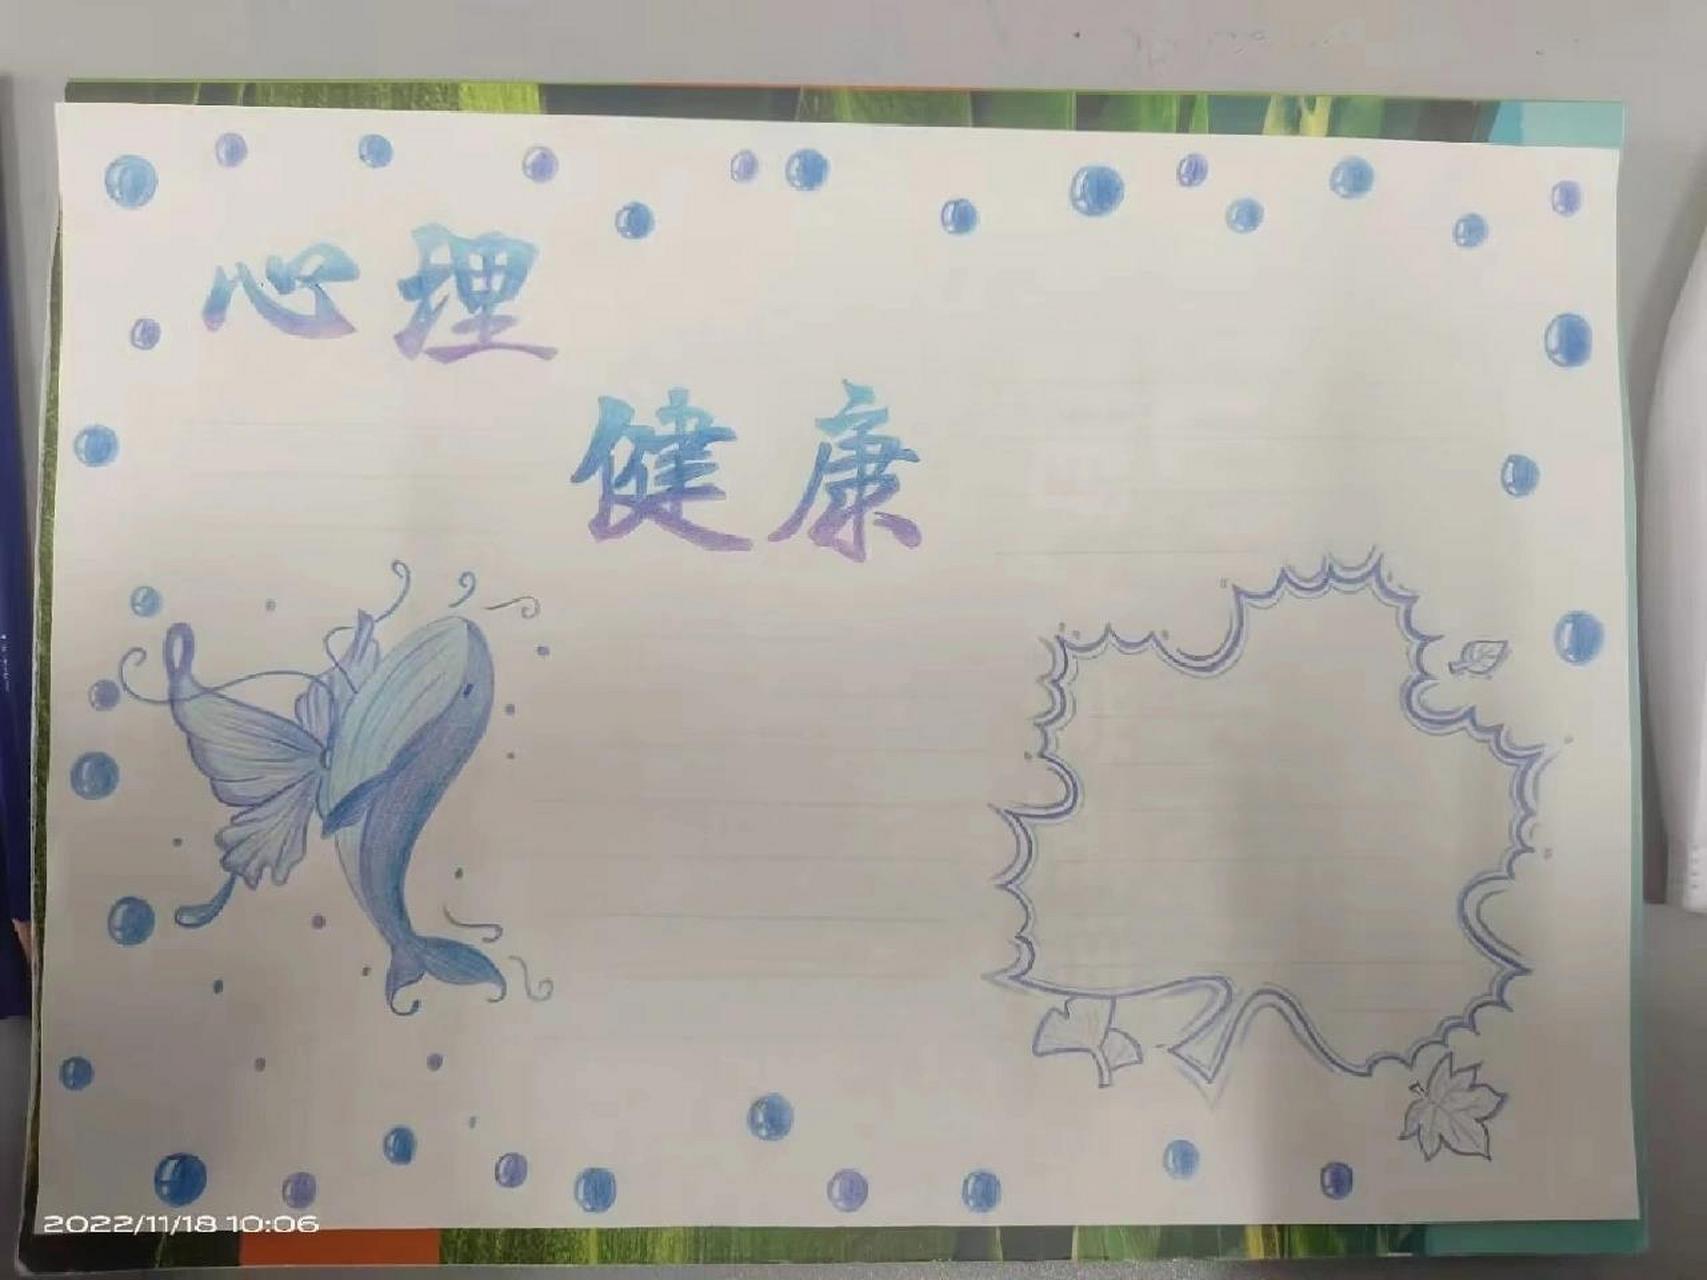 心理
健康
2022/11/18 10:06